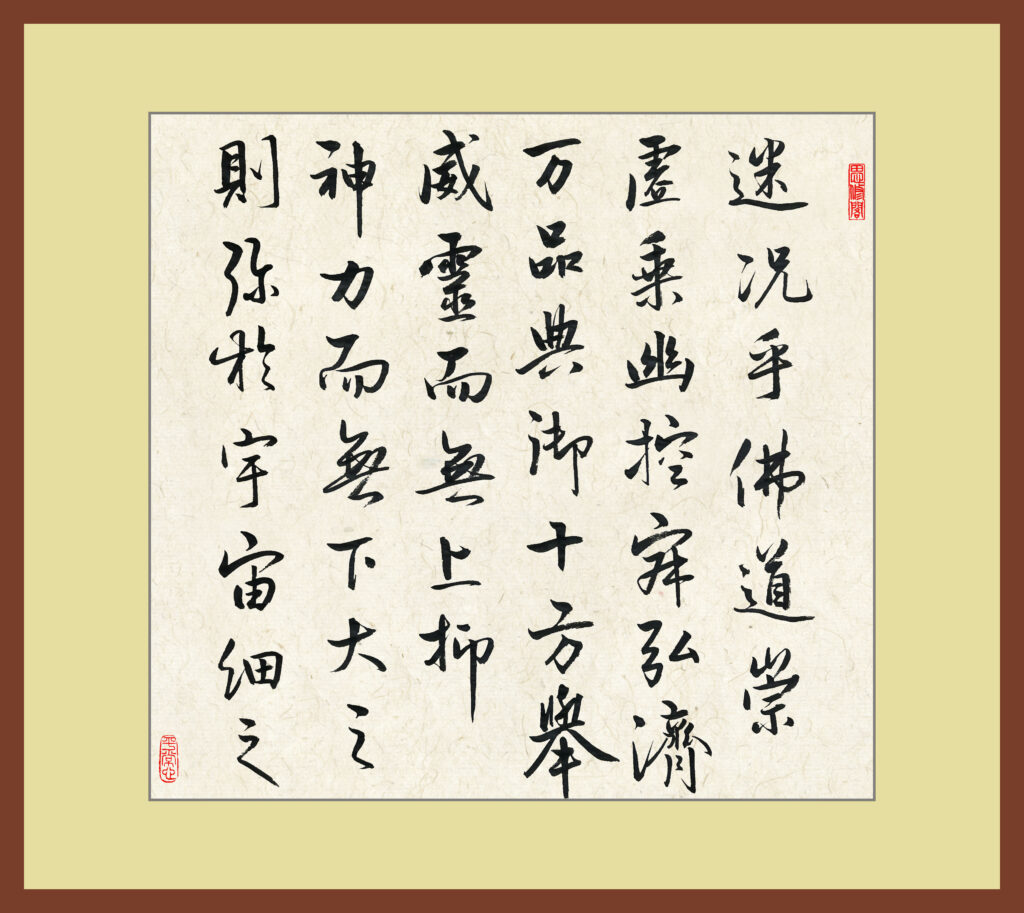 迷况乎佛道崇
虛乘幽控寂弘濟
万品典御十方舉
威靈而無上抑
神力而無下大之
則弥於宇宙細之
思脩閣
平常心